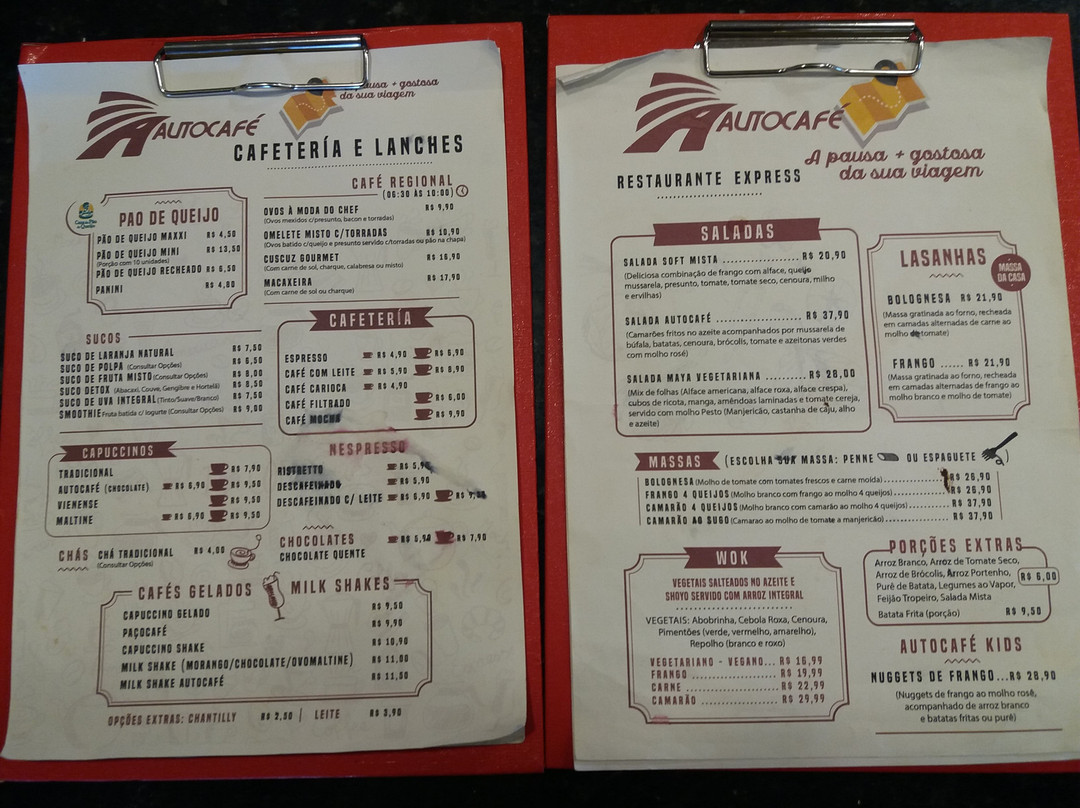 AUTOCAFÉ
pausa + gostosa
da sua viagem
CAFETERÍA E LANCHES
PAO DE QUEIJO
PÃO DE QUEIJO MAXXI R$ 4,50
PÃO DE QUEIJO MINI R$ 13,50
(Porção com 10 unidades)
PÃO DE QUEIJO RECHEADO R$ 6,50
PANINI R$ 4,80
CAFÉ REGIONAL
(06:30 ÀS 10:00)
OVOS À MODA DO CHEF R$ 9,90
(Ovos mexidos c/presunto, bacon e torradas)
OMELETE MISTO C/TORRADAS R$ 10,90
(Ovos batido c/queijo e presunto servido c/torradas ou pão na chapa)
CUSCUZ GOURMET R$ 16,90
(Com carne de sol, charque, calabresa ou misto)
MACAXEIRA R$ 17,90
(Com carne de sol ou charque)
SUCOS
SUCO DE LARANJA NATURAL R$ 7,50
SUCO DE POLPA (Consultar Opções) R$ 6,50
SUCO DE FRUTA MISTO (Consultar Opções) R$ 8,00
SUCO DETOX (Abacaxi, Couve, Gengibre e Hortelã) R$ 8,50
SUCO DE UVA INTEGRAL (Tinto/Suave/Branco) R$ 7,50
SMOOTHIE Fruta batida c/ iogurte (Consultar Opções) R$ 9,00
CAFETERÍA
ESPRESSO R$ 4,90 R$ 6,90
CAFÉ COM LEITE R$ 5,90 R$ 8,90
CAFÉ CARIOCA R$ 4,90
CAFÉ FILTRADO R$ 6,00
CAFÉ MOCHA R$ 9,90
CAPUCCINOS
TRADICIONAL R$ 7,90
AUTOCAFÉ (CHOCOLATE) R$ 6,90 R$ 9,50
VIENENSE R$ 9,50
MALTINE R$ 6,90 R$ 9,50
NESPRESSO
RISTRETTO R$ 5,90
DESCAFEINADO R$ 5,90
DESCAFEINADO C/ LEITE R$ 6,90 R$ 9,50
CHÁS
CHÁ TRADICIONAL R$ 4,00
(Consultar Opções)
CHOCOLATES
CHOCOLATE QUENTE R$ 5,90 R$ 7,90
CAFÉS GELADOS MILK SHAKES
CAPUCCINO GELADO R$ 9,50
PAÇOCAFÉ R$ 9,90
CAPUCCINO SHAKE R$ 10,90
MILK SHAKE (MORANGO/CHOCOLATE/OVOMALTINE) R$ 11,00
MILK SHAKE AUTOCAFÉ R$ 11,50
OPÇÕES EXTRAS: CHANTILLY R$ 2,50 | LEITE R$ 3,90
AUTOCAFÉ
A pausa + gostosa
da sua viagem
RESTAURANTE EXPRESS
SALADAS
SALADA SOFT MISTA ..................... R$ 20,90
(Deliciosa combinação de frango com alface, queijo
mussarela, presunto, tomate, tomate seco, cenoura, milho
e ervilhas)
SALADA AUTOCAFÉ ..................... R$ 37,90
(Camarões fritos no azeite acompanhados por mussarela de
búfala, batatas, cenoura, brócolis, tomate e azeitonas verdes
com molho rosé)
SALADA MAYA VEGETARIANA .......... R$ 28,00
(Mix de folhas (Alface americana, alface roxa, alface crespa),
cubos de ricota, manga, amêndoas laminadas e tomate cereja,
servido com molho Pesto (Manjericão, castanha de caju, alho
e azeite)
LASANHAS
MASSA
DA CASA
BOLOGNESA R$ 21,90
(Massa gratinada ao forno, recheada
em camadas alternadas de carne ao
molho de tomate)
FRANGO R$ 21,90
(Massa gratinada ao forno, recheada
em camadas alternadas de frango ao
molho branco e molho de tomate)
MASSAS (ESCOLHA SUA MASSA: PENNE OU ESPAGUETE)
BOLOGNESA (Molho de tomate com tomates frescos e carne moída) ..................... R$ 26,90
FRANGO 4 QUEIJOS (Molho branco com frango ao molho 4 queijos) ..................... R$ 26,90
CAMARÃO 4 QUEIJOS (Molho branco com camarão ao molho 4 queijos) ................ R$ 37,90
CAMARÃO AO SUGO (Camarao ao molho de tomate a manjericão) ..................... R$ 37,90
WOK
VEGETAIS SALTEADOS NO AZEITE E
SHOYO SERVIDO COM ARROZ INTEGRAL
VEGETAIS: Abobrinha, Cebola Roxa, Cenoura,
Pimentões (verde, vermelho, amarelo),
Repolho (branco e roxo)
VEGETARIANO - VEGANO... R$ 16,99
FRANGO ..................... R$ 19,99
CARNE ....................... R$ 22,99
CAMARÃO ................... R$ 29,99
PORÇÕES EXTRAS
Arroz Branco, Arroz de Tomate Seco,
Arroz de Brócolis, Arroz Portenho,
Purê de Batata, Legumes ao Vapor,
Feijão Tropeiro, Salada Mista
R$ 6,00
Batata Frita (porção) R$ 9,50
AUTOCAFÉ KIDS
NUGGETS DE FRANGO...R$ 28,90
(Nuggets de frango ao molho rosê,
acompanhado de arroz branco
e batatas fritas ou purê)